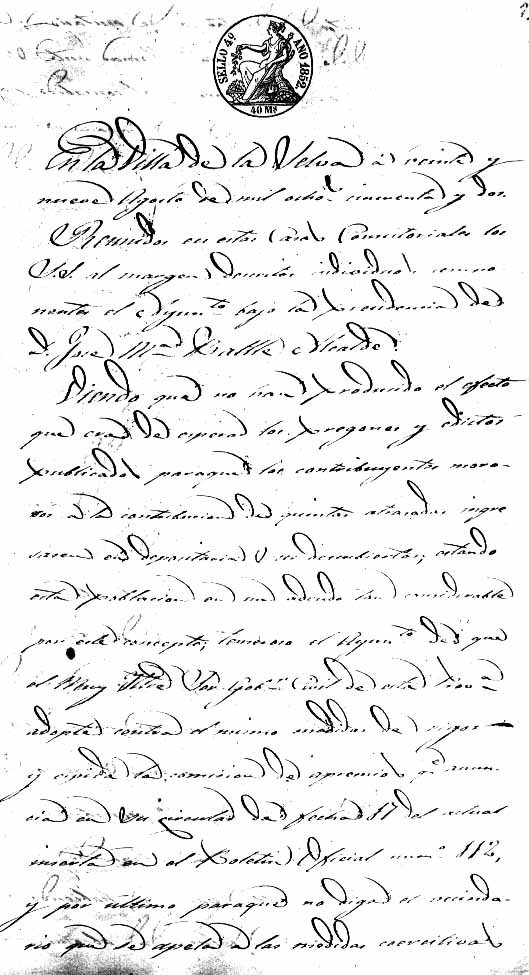 2
SELLO 4º AÑO 1852
40 Ms
En la Villa de la Selva à veinte y
nueve Agosto de mil ochos. cincuenta y dos.
Reunidos en estas Casas Consistoriales los
S.S. al margen descritos individuos compo
nentes el Ayunto. bajo la presidencia de
D. José Ma. Batlle Alcalde.
Viendo que no han producido el efecto
que era de esperar los pregones y edictos
publicados paraque los contribuyentes moro-
sos a la contribucion de quintos atrasados ingre
sasen en depositaria sus descubiertos; estando
esta poblacion en un adeudo tan considerable
por este concepto, temeroso el Ayunto. de que
el Muy Iltre Sor. Gobr. Civil de esta Prova.
adopte contra el mismo medidas de rigor
y espida la comision de apremio qe. anun-
cia en su circular de fecha 17 del actual
inserta en el Boletin Oficial numo. 112,
y por ultimo paraque no diga el vecinda-
rio que se apela a las medidas coercitivas